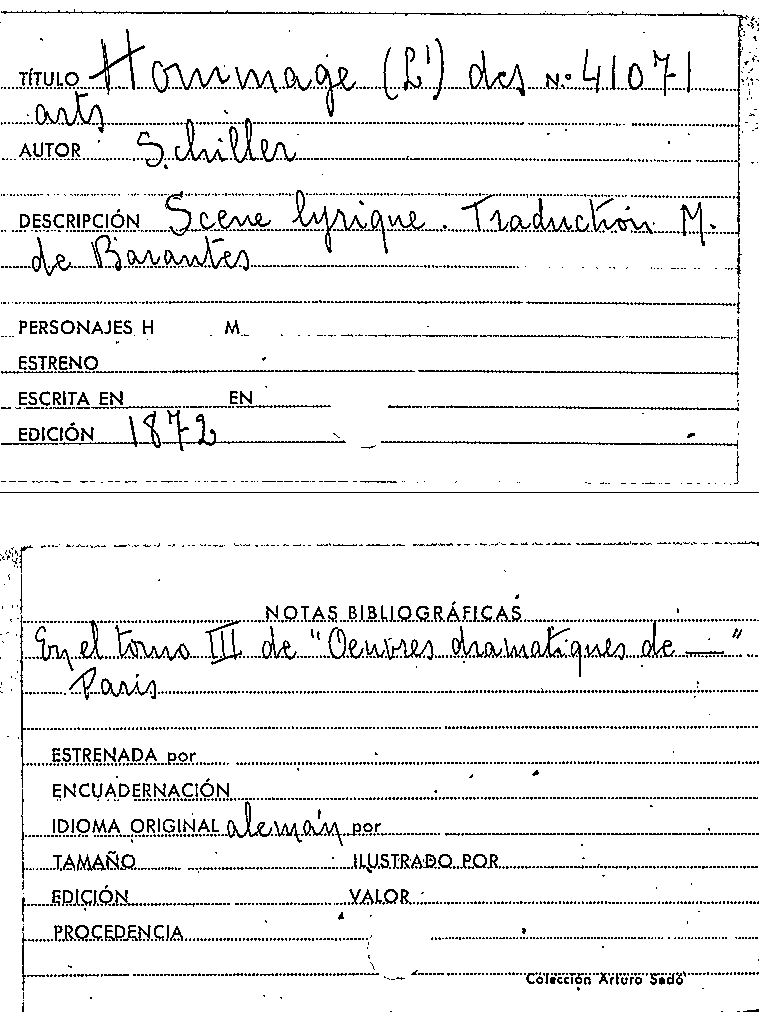 TÍTULO Hommage (L') des N.º 41071
arts
AUTOR Schiller
DESCRIPCIÓN Scene lyrique. Traduction M.
de Barantes
PERSONAJES H M
ESTRENO
ESCRITA EN EN
EDICIÓN 1872
NOTAS BIBLIOGRÁFICAS
En el tomo III de "Oeuvres dramatiques de —"
Paris
ESTRENADA por
ENCUADERNACIÓN
IDIOMA ORIGINAL alemán por
TAMAÑO ILUSTRADO POR
EDICIÓN VALOR
PROCEDENCIA
Colección Arturo Sedó